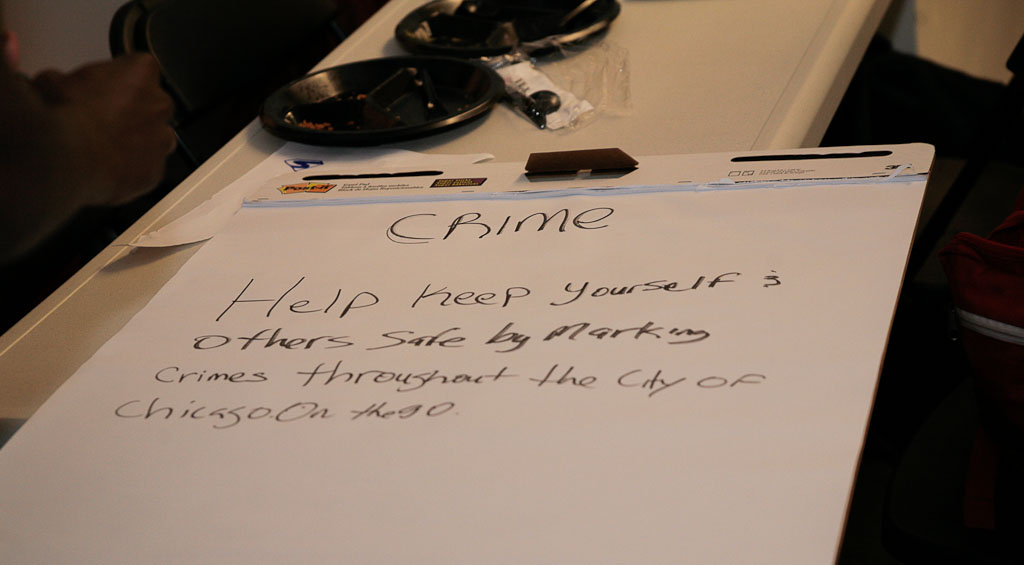 Post-it
CRIME
Help Keep Yourself &
Others Safe by Marking
Crimes throughout the City of
Chicago. On the go.